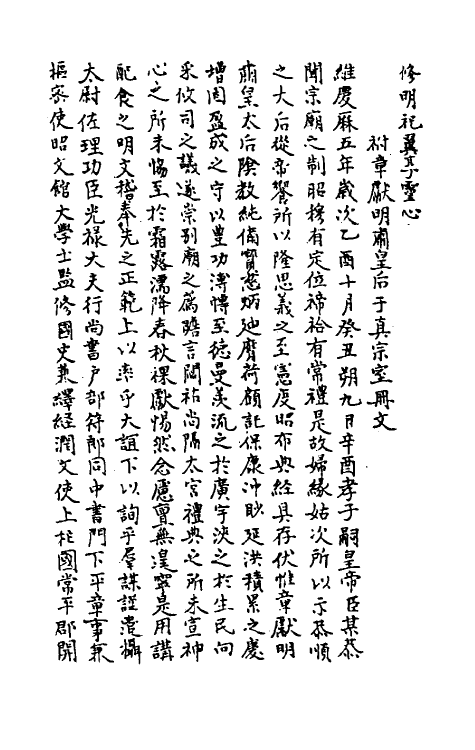 修明祀翼享靈心
祔章獻明肅皇后于真宗室冊文
維慶厤五年歲次乙酉十月癸丑朔九日辛酉孝子嗣皇帝臣某恭
聞宗廟之制昭穆有定位禘祫有常禮是故婦緣姑次所以示恭順
之大后從帝饗所以隆思義之至憲度昭布典經具存伏惟章獻明
肅皇太后陰教純備寳慈炳廸膺荷顧託保康沖眇延洪積累之慶
增固盈成之守以豊功溥愽至徳曼羨流之於廣宇浹之於生民向
采攸司之議遂崇别廟之薦瞻言閟祏尚隔太宮禮典之所未宣神
心之所未愓至於霜露濡降春秋祼獻惕然念慮亶無遑寧是用講
配食之明文稽奉先之正範上以率乎大誼下以詢乎羣謀謹遣攝
太尉佐理功臣光禄大夫行尚書户部侍郎同中書門下平章事兼
樞宻使昭文館大學士監修國史兼繹經潤文使上柱國常平郡開